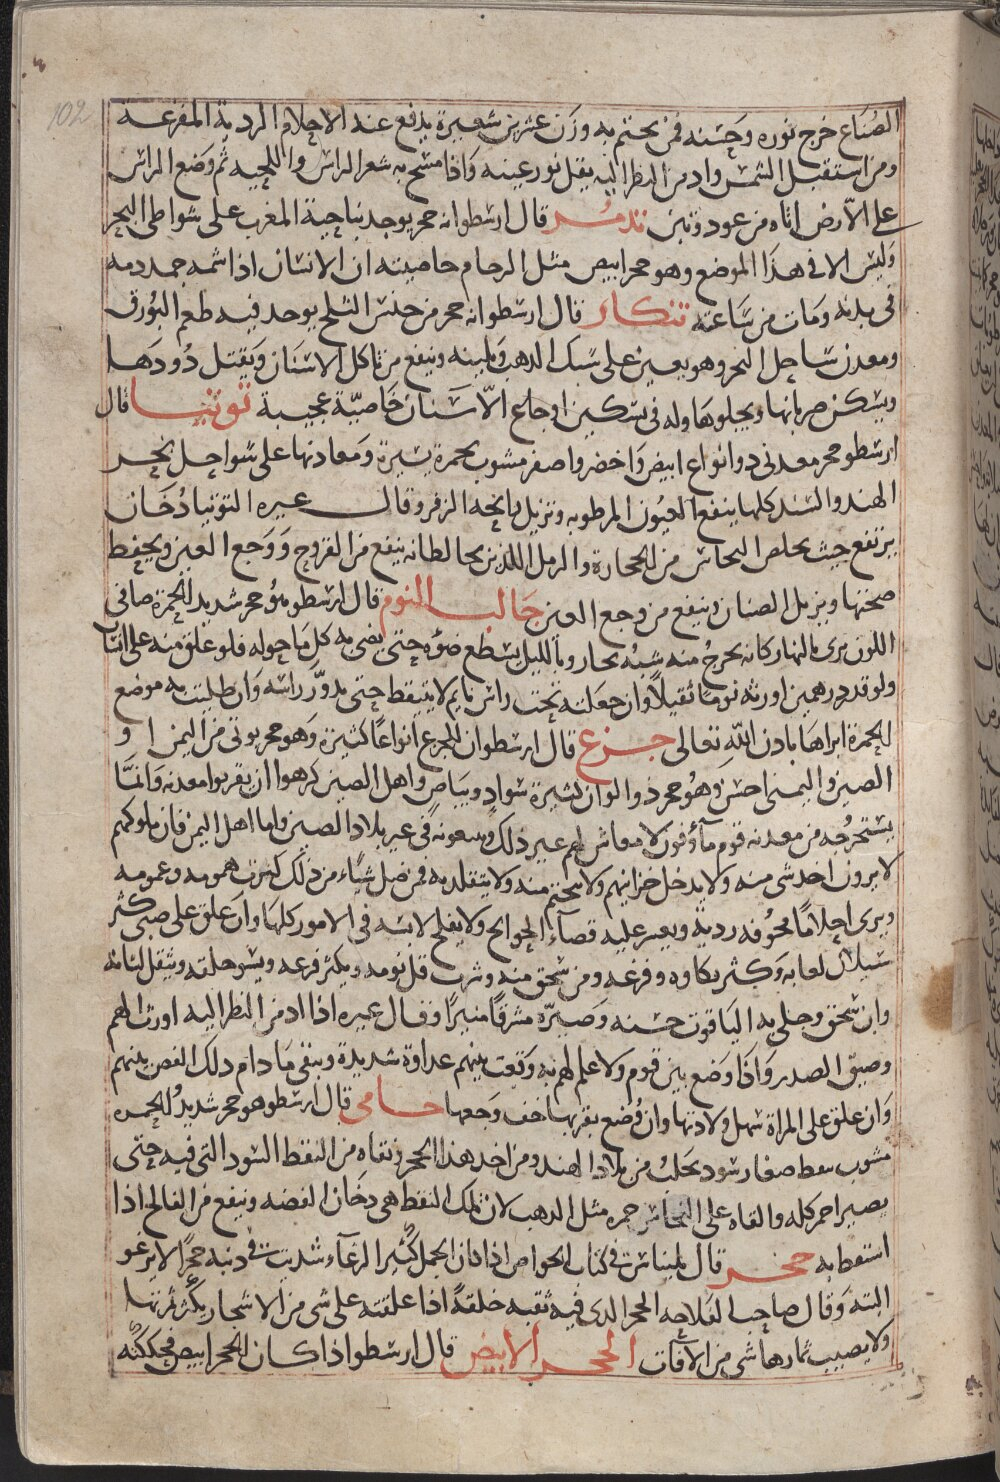 102
الصُنّاع خرج نوره وحَسُنه فمن يختم به وزن عشرين شعيرة يدفع عنه الاحلام الردية المفزعة
ومن استقبل الشمس وادمن النظر اليه يقل نور عينه واذا مسح به شعر الراس واللحيه ثم وضع الراس
على الارض اتاه من عود وتبن تدمر قال ارسطو انه حجر يوجد بناحية المغرب على شواطى البحر
وليس الا فى هذا الموضع وهو حجر ابيض مثل الرخام خاصيته ان الانسان اذا شمه جمد دمه
فى بدنه ومات من ساعته تنكار قال ارسطو انه حجر من جنس الملح يوجد فيه طعم البُورق
ومعدن ساحل البحر وهو يعين على سبك الذهب ويلينه وينفع من تاكل الاسنان ويقتل دُودهَا
ويسكن ضربانها ويجلوهَا وله فى تسكين اوجاع الاسنان خاصيّة عجيبة توتيا قال
ارسطو حجر معدنى ذو انواع ابيض واخضر واصفر مشوب بحمرة يسيرة ومعادنها على سواحل بحر
الهند والسند كلها ينفع العيُون المرطوبه وتزيل رايحه الزفر وقال غيره التوتيا دُخان
يرتفع حيث يخلص النحاس من الحجارة والرمل اللذين يخالطانه ينفع من القروح ووجع العين ويحفظ
صحتها ويزيل الصنان وينفع من وجع العين جالب النوم قال ارسطو هُو حجر شديد الحمرة صافى
اللون يرى بالنهار كانه يخرجُ منه شبهُ بخار وبالليل يسطع ضوُه حتى يضى به كل مَا حوله فلو علق منه على انسان
ولو قدر درهمين اورثه نومًا ثقيلاً وان جعلته تحت راس نايم لا يتيقظ حتى يدوّر راسَه وان طليت به موضع
الحمرة ابراها باذن اللّه تعالى جزع قال ارسطو ان للجزع انواعًا كثيرة وهو حجر يوتى من اليمن او
الصين واليمنى احسن وهُو حجر ذو الوان كثيرة سواد وبياض واهل الصين كرهوا ان يقربوا معدنه وانمَا
يستخرجُه من معدنه قوم مأوفون لا معاش لهم غير ذلك ويبيعونه فى غير بلاد الصين واما اهل اليمن فان ملوكهم
لا يرون اخد شى منه ولا يدخل خزاينهم ولا يختم منه ولا يتقلد به فمن فعل شياء من ذلك كثرت همومه وغمومه
ويرى احلامًا مخوفه رديّة ويعسر عليه قضاء الحوايج ولا يفلح لابسَه فى الامور كلها وان علق على صبى كثر
سيلان لعابه وكثر بكاوه وفزغه ومن سحق منه وشرب قل نومه ويكثر فزعه ويسو خلقه ويثقل لسانه
وان سحق وجلى به الياقوت حسنه وصيّره مشرقًا منيرًا وقال غيره اذا ادمن النظر اليه اورث الهم
وضيق الصدر واذا وضع بين قوم ولا علم لهم به وقعت بينهم عداوة شديدة ويبقى مَا دام ذلك الفص بينهم
وَان علق على المراة سهل ولادتها وان وضع بقربها خف وجعها حامى قال ارسطو هو حجر شديدُ الحمرة
مشوب بنقط صغار سود يجلب من بلاد الهند ومن اخد هذا الحجر ونقاه من النقط السُود التى فيه حتى
يصير احمر كله والقاه على النحاس حمره مثل الذهب لان تلك النقط هى دخان الفضه وينفع من الفالج اذا
استعط به حجر قال بليناس فى كتاب الخواص اذا كان الجمل كثير الرغآء شديت فى ذنبه حجرًا لا يرغو
البتة وقال صاحب الفلاحه الحجر الذى فيه ثقبه خلقةً اذا علقته على شى من الاشجار يكثر ثمرتها
ولا يصيب ثمارها شى من الآفات الحجر الابيض قال ارسطو اذا كان الحجر ابيض فحككتُه